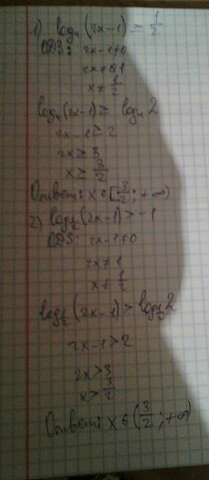 1) log₄(2x-1) ≥ 1/2
ОДЗ: 2x-1≠0
2x≠1
x≠1/2
log₄(2x-1) ≥ log₄2
2x-1≥2
2x≥3
x≥3/2
Ответ: x∈[3/2;+∞)
2) log½(2x-1)>-1
ОДЗ: 2x-1≠0
2x≠1
x≠1/2
log½(2x-1)>log½2
2x-1>2
2x>3
x>3/2
Ответ: x∈(3/2;+∞)